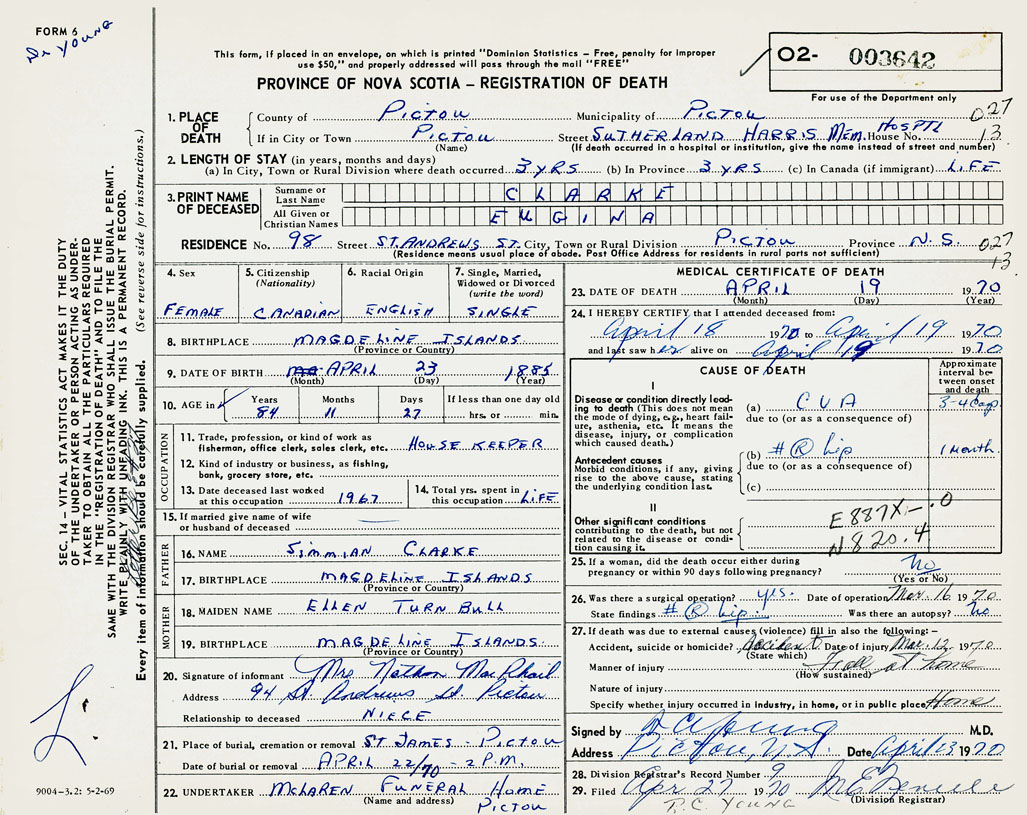 FORM 6
Dr YOUNG
This form, if placed in an envelope, on which is printed "Dominion Statistics – Free, penalty for improper
use $50," and properly addressed will pass through the mail "FREE"
PROVINCE OF NOVA SCOTIA – REGISTRATION OF DEATH
02- 003642
For use of the Department only
1. PLACE OF DEATH
County of PICTOU Municipality of PICTOU 027
If in City or Town PICTOU Street SUTHERLAND HARRIS MEM. HOSPTL House No. 13
(Name) (If death occurred in a hospital or institution, give the name instead of street and number)
2. LENGTH OF STAY (in years, months and days)
(a) In City, Town or Rural Division where death occurred 3 YRS (b) In Province 3 YRS (c) In Canada (if immigrant) LIFE
3. PRINT NAME OF DECEASED
Surname or Last Name CLARKE
All Given or Christian Names EUGINA
RESIDENCE No. 98 Street ST. ANDREWS ST. City, Town or Rural Division PICTOU Province N.S. 027
(Residence means usual place of abode. Post Office Address for residents in rural parts not sufficient) 13.
4. Sex FEMALE
5. Citizenship (Nationality) CANADIAN
6. Racial Origin ENGLISH
7. Single, Married, Widowed or Divorced (write the word) SINGLE
8. BIRTHPLACE MAGDELINE ISLANDS
(Province or Country)
9. DATE OF BIRTH APRIL 23 1885
(Month) (Day) (Year)
10. AGE in Years 84 Months 11 Days 27 If less than one day old hrs. or min.
OCCUPATION
11. Trade, profession, or kind of work as
fisherman, office clerk, sales clerk, etc. HOUSE KEEPER
12. Kind of industry or business, as fishing,
bank, grocery store, etc.
13. Date deceased last worked
at this occupation 1967
14. Total yrs. spent in
this occupation LIFE
15. If married give name of wife
or husband of deceased
FATHER
16. NAME SIMMIAN CLARKE
17. BIRTHPLACE MAGDELINE ISLANDS
(Province or Country)
MOTHER
18. MAIDEN NAME ELLEN TURNBULL
19. BIRTHPLACE MAGDELINE ISLANDS.
(Province or Country)
20. Signature of informant Mrs Nathan MacPhail
Address 94 St. Andrews St. Pictou
Relationship to deceased NIECE
21. Place of burial, cremation or removal ST JAMES - PICTOU
Date of burial or removal APRIL 22/70 - 2 P.M.
22. UNDERTAKER McLAREN FUNERAL HOME
(Name and address) PICTOU
MEDICAL CERTIFICATE OF DEATH
23. DATE OF DEATH APRIL 19 1970
(Month) (Day) (Year)
24. I HEREBY CERTIFY that I attended deceased from:
April 18 1970 to April 19 1970
and last saw her alive on April 19 1970
CAUSE OF DEATH
Approximate interval between onset and death
I
Disease or condition directly leading to death (This does not mean the mode of dying, e.g., heart failure, asthenia, etc. It means the disease, injury, or complication which caused death.)
(a) CVA 3-4 days
due to (or as a consequence of)
Antecedent causes
Morbid conditions, if any, giving rise to the above cause, stating the underlying condition last.
(b) # R hip 1 Month
due to (or as a consequence of)
(c)
II
Other significant conditions
contributing to the death, but not related to the disease or condition causing it.
E887X-.0
N820.4
25. If a woman, did the death occur either during
pregnancy or within 90 days following pregnancy? no
(Yes or No)
26. Was there a surgical operation? yes. Date of operation Mar. 16 1970
State findings # R hip. Was there an autopsy? no
27. If death was due to external causes (violence) fill in also the following:–
Accident, suicide or homicide? Accident Date of injury Mar. 12 1970
(State which)
Manner of injury Fall at home
(How sustained)
Nature of injury
Specify whether injury occurred in industry, in home, or in public place Home
Signed by Young M.D.
Address Pictou, N.S. Date April 23 1970
28. Division Registrar's Record Number 9
29. Filed Apr 27 1970
(Division Registrar)
P.C. YOUNG
SEC. 14 – VITAL STATISTICS ACT MAKES IT THE DUTY
OF THE UNDERTAKER OR PERSON ACTING AS UNDERTAKER
TO OBTAIN ALL THE PARTICULARS REQUIRED
IN THE "REGISTRATION OF DEATH" AND TO FILE THE
SAME WITH THE DIVISION REGISTRAR WHO SHALL ISSUE THE BURIAL PERMIT.
WRITE PLAINLY WITH UNFADING INK. THIS IS A PERMANENT RECORD.
Every item of information should be carefully supplied. (See reverse side for instructions.)
9004-3.2: 5-2-69